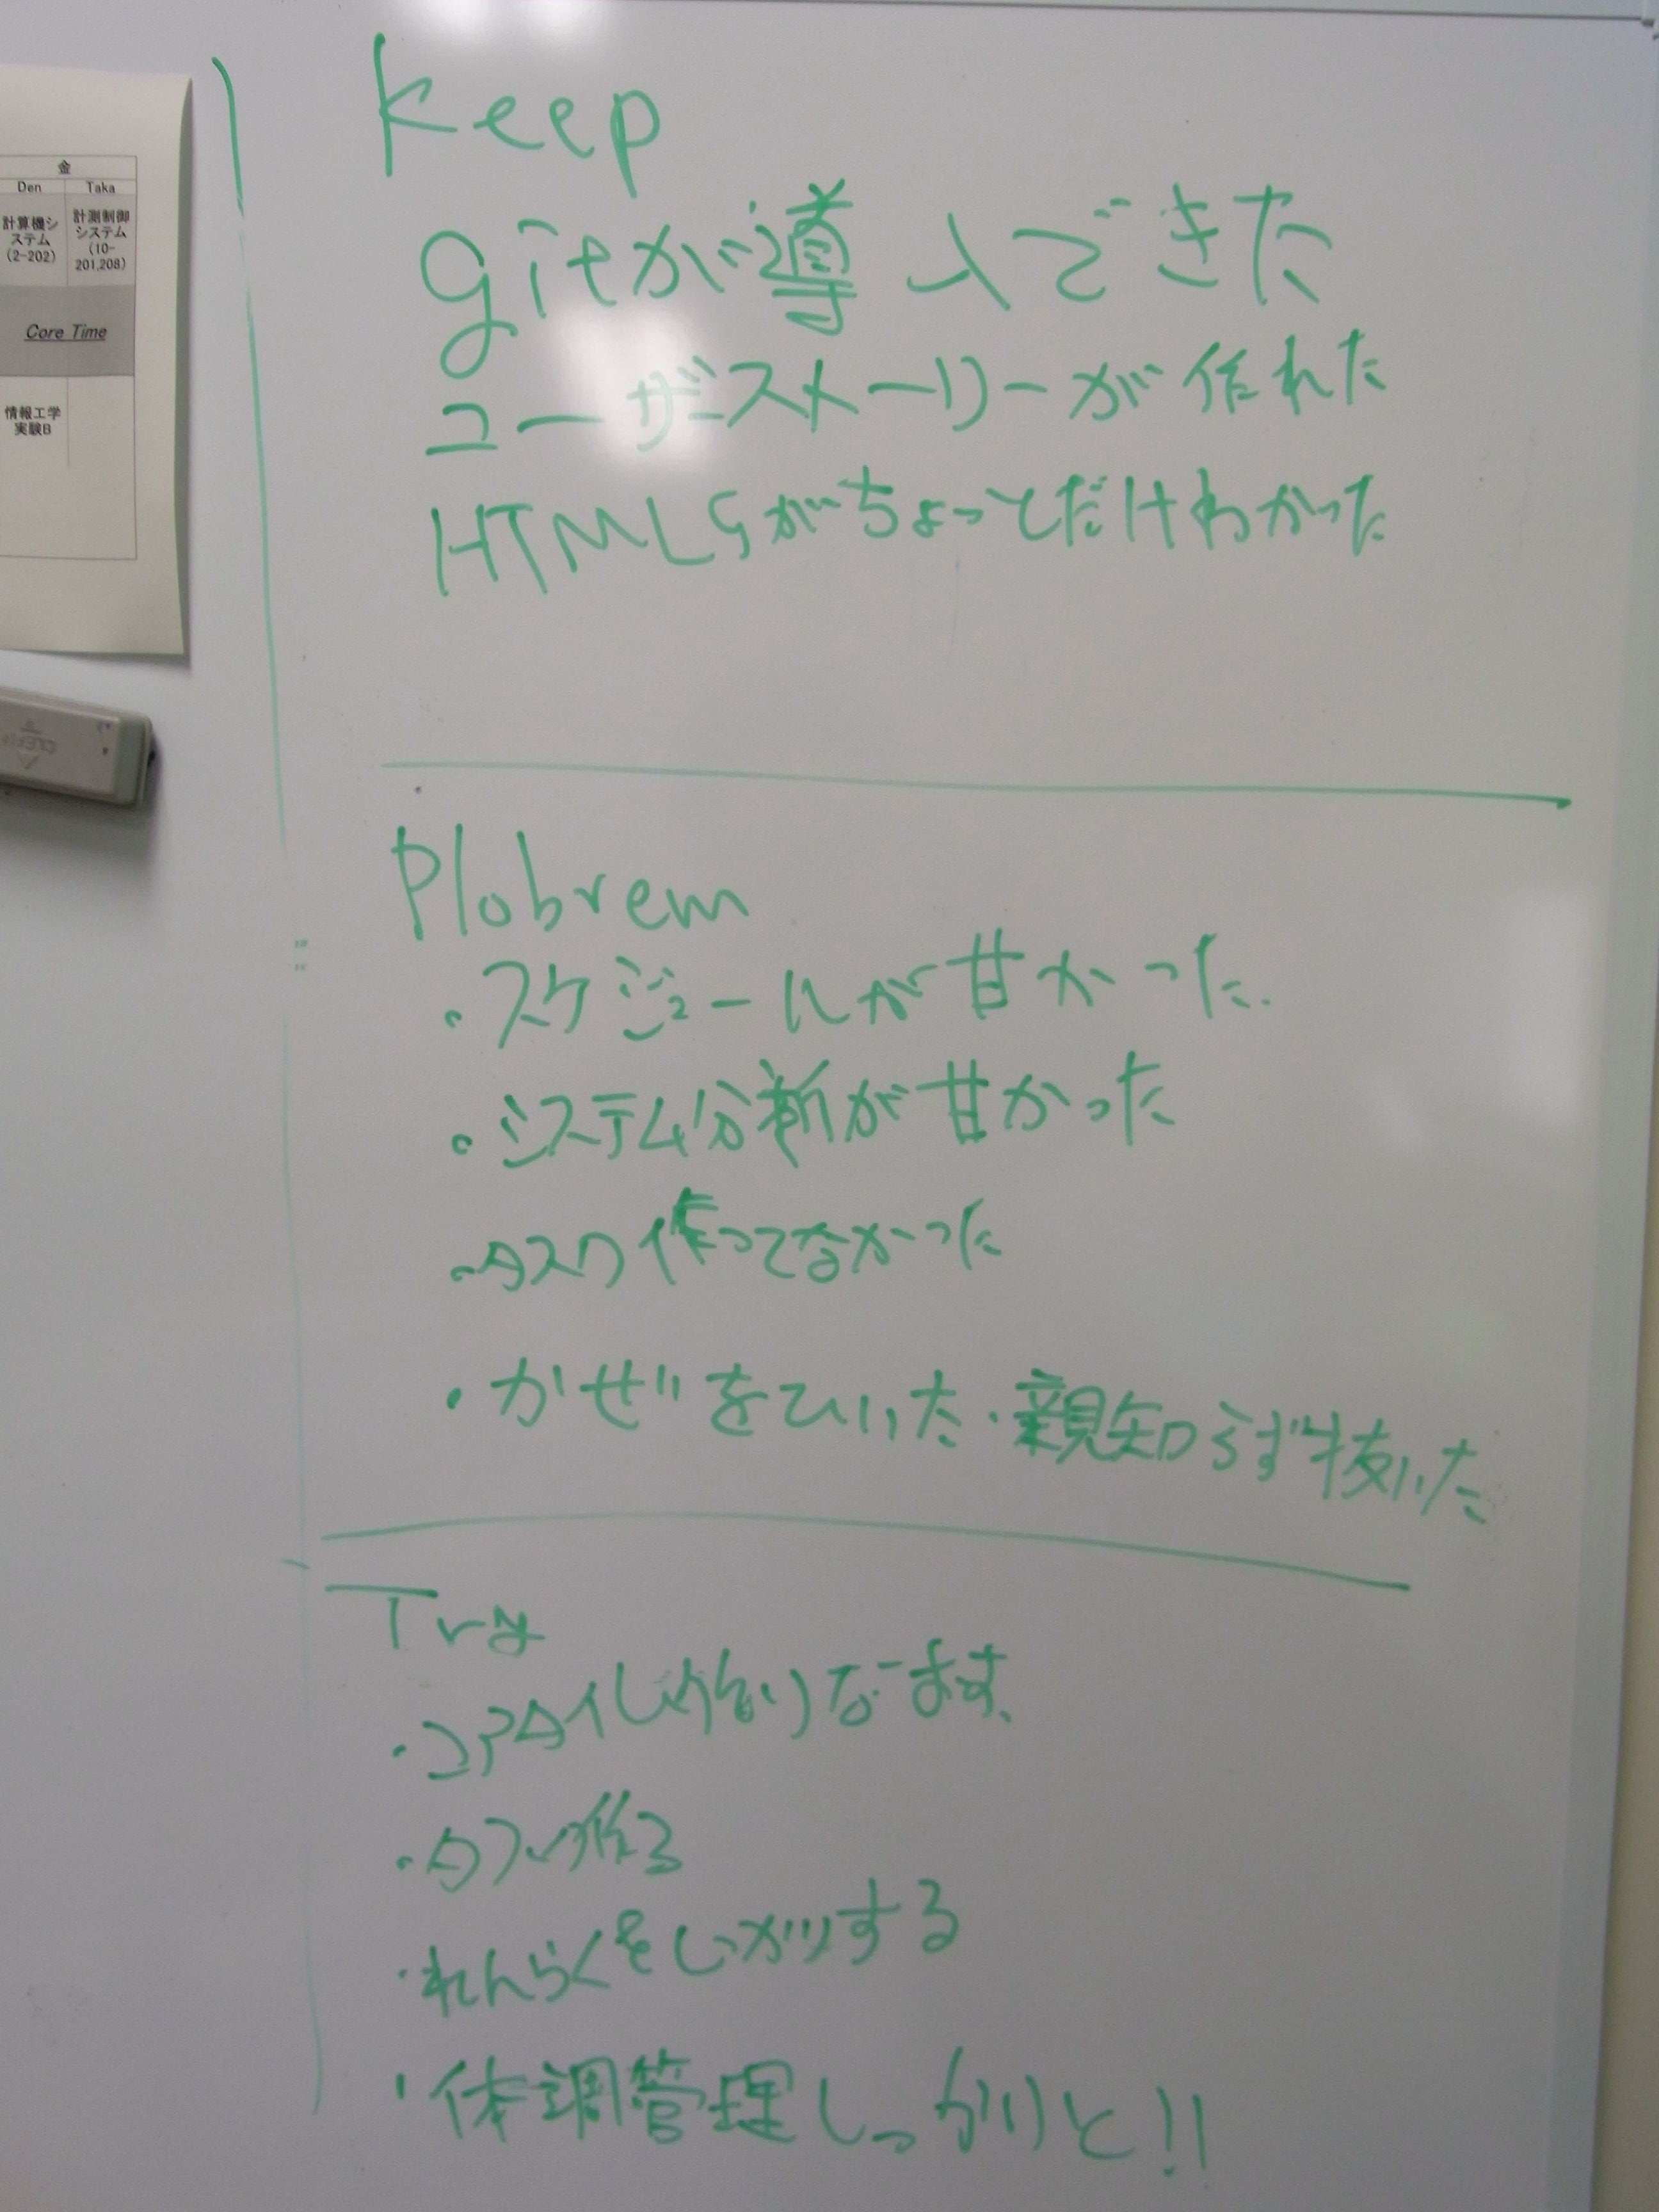 金
Den Taka
計算機システム (2-202)
計測制御システム (10-201,208)
Core Time
情報工学実験B
Keep
gitが導入できた
ユーザーストーリーが作れた
HTML5がちょっとだけわかった
Plobrem
・スケジュールが甘かった.
・システム分析が甘かった
・タスク作ってなかった
・かぜをひいた・親知らず抜いた
Try
・コアタイム
・タスク作る
・れんらくをしっかりする
・体調管理しっかりと!!